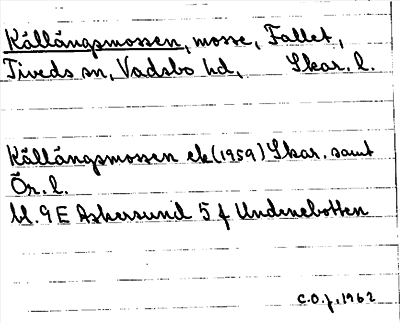 Källängsmossen, mosse, Fallet,
Tiveds sn, Vadsbo hd, Skar. l.
Källängsmossen ek (1959) Skar. samt
Ör. l.
bl. 9E Askersund 5 f Undenebotten
C.O.J. 1962